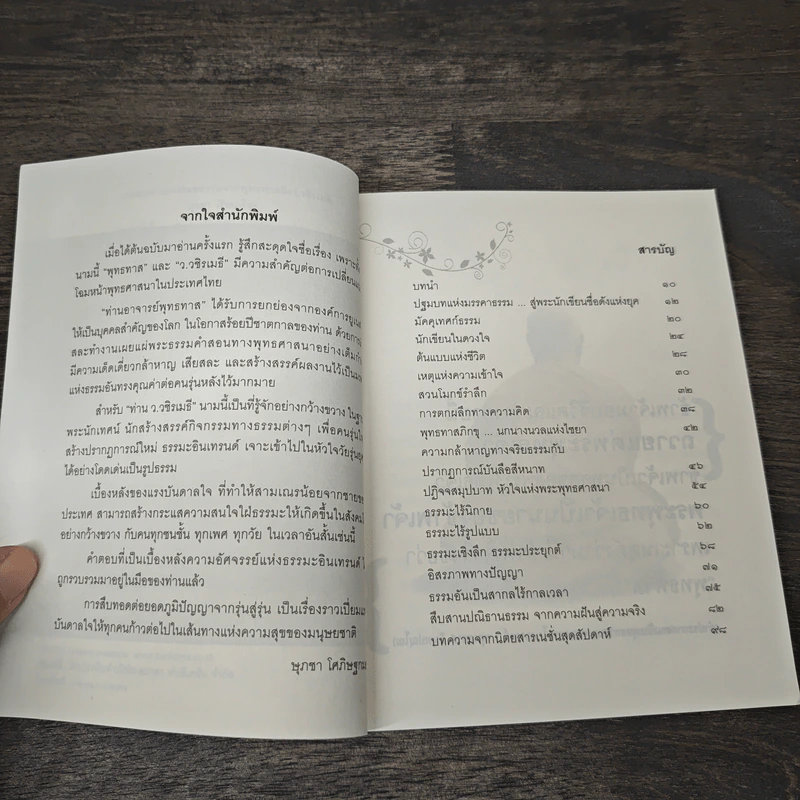 จากใจสำนักพิมพ์
เมื่อได้ต้นฉบับมาอ่านครั้งแรก รู้สึกสะดุดใจชื่อเรื่อง เพราะทั้ง
นามนี้ "พุทธทาส" และ "ว.วชิรเมธี" มีความสำคัญต่อการเปลี่ยนแปลง
โฉมหน้าพุทธศาสนาในประเทศไทย
"ท่านอาจารย์พุทธทาส" ได้รับการยกย่องจากองค์การยูเน
ให้เป็นบุคคลสำคัญของโลก ในโอกาสร้อยปีชาตกาลของท่าน ด้วยการ
สละทำงานเผยแผ่พระธรรมคำสอนทางพุทธศาสนาอย่างเต็ม
มีความเด็ดเดี่ยวกล้าหาญ เสียสละ และสร้างสรรค์ผลงานไว้เป็น
แห่งธรรมอันทรงคุณค่าต่อคนรุ่นหลังไว้มากมาย
สำหรับ "ท่าน ว.วชิรเมธี" นามนี้เป็นที่รู้จักอย่างกว้างขวาง ใน
พระนักเทศน์ นักสร้างสรรค์กิจกรรมทางธรรมต่างๆ เพื่อคนรุ่นใ
สร้างปรากฏการณ์ใหม่ ธรรมะอินเทรนด์ เจาะเข้าไปในหัวใจวัยรุ่น
ได้อย่างโดดเด่นเป็นรูปธรรม
เบื้องหลังของแรงบันดาลใจ ที่ทำให้สามเณรน้อยจากชายข
ประเทศ สามารถสร้างกระแสความสนใจใฝ่ธรรมะให้เกิดขึ้นในสังคม
อย่างกว้างขวาง กับคนทุกชนชั้น ทุกเพศ ทุกวัย ในเวลาอันสั้นเช่นนี้
คำตอบที่เป็นเบื้องหลังความอัศจรรย์แห่งธรรมะอินเทรนด์
ถูกรวบรวมมาอยู่ในมือของท่านแล้ว
การสืบทอดต่อยอดภูมิปัญญาจากรุ่นสู่รุ่น เป็นเรื่องราวเปี่ยม
บันดาลใจให้ทุกคนก้าวต่อไปในเส้นทางแห่งความสุขของมนุษยชาติ
ษุภชา โศภิษฐกม
สารบัญ
บทนำ ๑๐
ปฐมบทแห่งมรรคาธรรม ... สู่พระนักเขียนชื่อดังแห่งยุค ๑๒
มัคคุเทศก์ธรรม ๒๐
นักเขียนในดวงใจ ๒๔
ต้นแบบแห่งชีวิต ๒๘
เหตุแห่งความเข้าใจ ๓๐
สวนโมกข์รำลึก ๓๒
การตกผลึกทางความคิด ๓๘
พุทธทาสภิกขุ ... นกนางนวลแห่งไชยา ๔๒
ความกล้าหาญทางจริยธรรมกับ
ปรากฏการณ์บันลือสีหนาท ๔๖
ปฏิจจสมุปบาท หัวใจแห่งพระพุทธศาสนา ๕๔
ธรรมะไร้นิกาย ๖๐
ธรรมะไร้รูปแบบ ๖๒
ธรรมะเชิงลึก ธรรมะประยุกต์ ๖๘
อิสรภาพทางปัญญา ๗๑
ธรรมอันเป็นสากลไร้กาลเวลา ๗๕
สืบสานปณิธานธรรม จากความฝันสู่ความจริง ๘๒
บทความจากนิตยสารเนชั่นสุดสัปดาห์ ๙๘